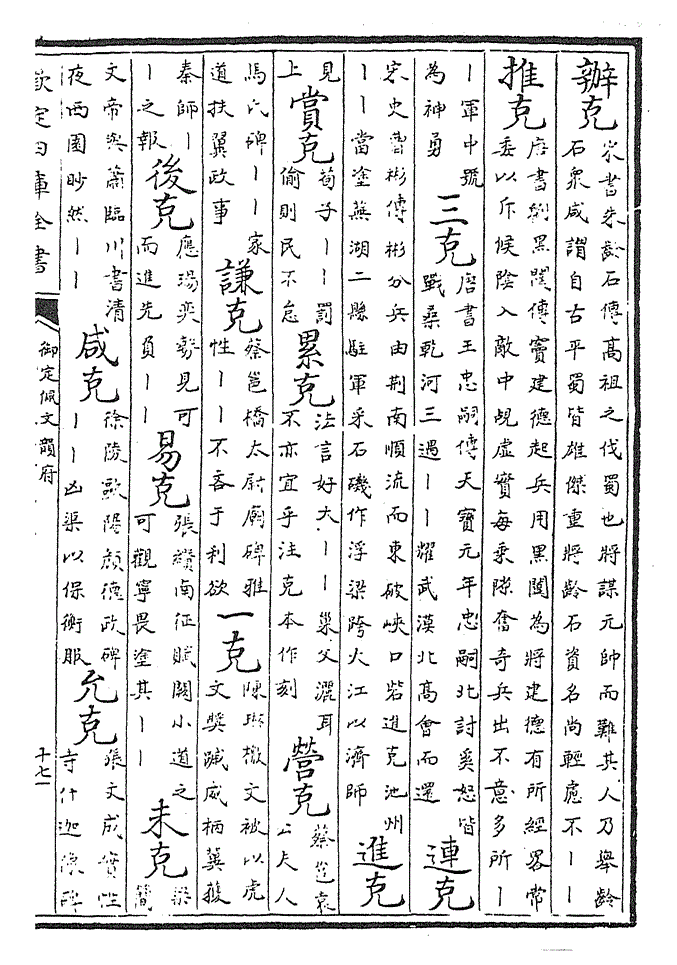 辦克
宋書朱齡石傳高祖之伐蜀也將謀元帥而難其人乃舉齡
石衆咸謂自古平蜀皆雄傑重將齡石資名尚輕慮不丨丨
推克
唐書劉黑闥傳竇建德起兵用黑闥為將建德有所經畧常
委以斥候陰入敵中覘虛實每乘隙奮奇兵出不意多所丨
丨軍中號
為神勇
三克
唐書王忠嗣傳天寶元年忠嗣北討奚怒皆
戰桑乾河三遇丨丨耀武漠北高會而還
連克
宋史曹彬傳彬分兵由荆南順流而東破峽口砦進克池州
丨丨當塗蕪湖二縣駐軍采石磯作浮梁跨大江以濟師
進克
見
上
賞克
荀子丨丨罰
偷則民不怠
累克
法言好大丨丨巢父灑耳
不亦宜乎注克本作刻
營克
蔡邕袁
夫人
馬氏碑丨丨家
道扶翼政事
謙克
蔡邕橋太尉廟碑雅
性丨丨不吝于利欲
一克
陳琳檄文被以虎
文奬蹴威柄冀獲
秦師丨
丨之報
後克
應瑒奕勢見可
而進先負丨丨
易克
張纘南征賦闢小道之
可觀寧畏塗其丨丨
未克
梁
簡
文帝與蕭臨川書清
夜西園眇然丨丨
咸克
徐陵歐陽頠德政碑
丨丨凶渠以保衡服
允克
張文成實性
寺什迦像碑
欽定四庫全書
御定佩文韻府
十七